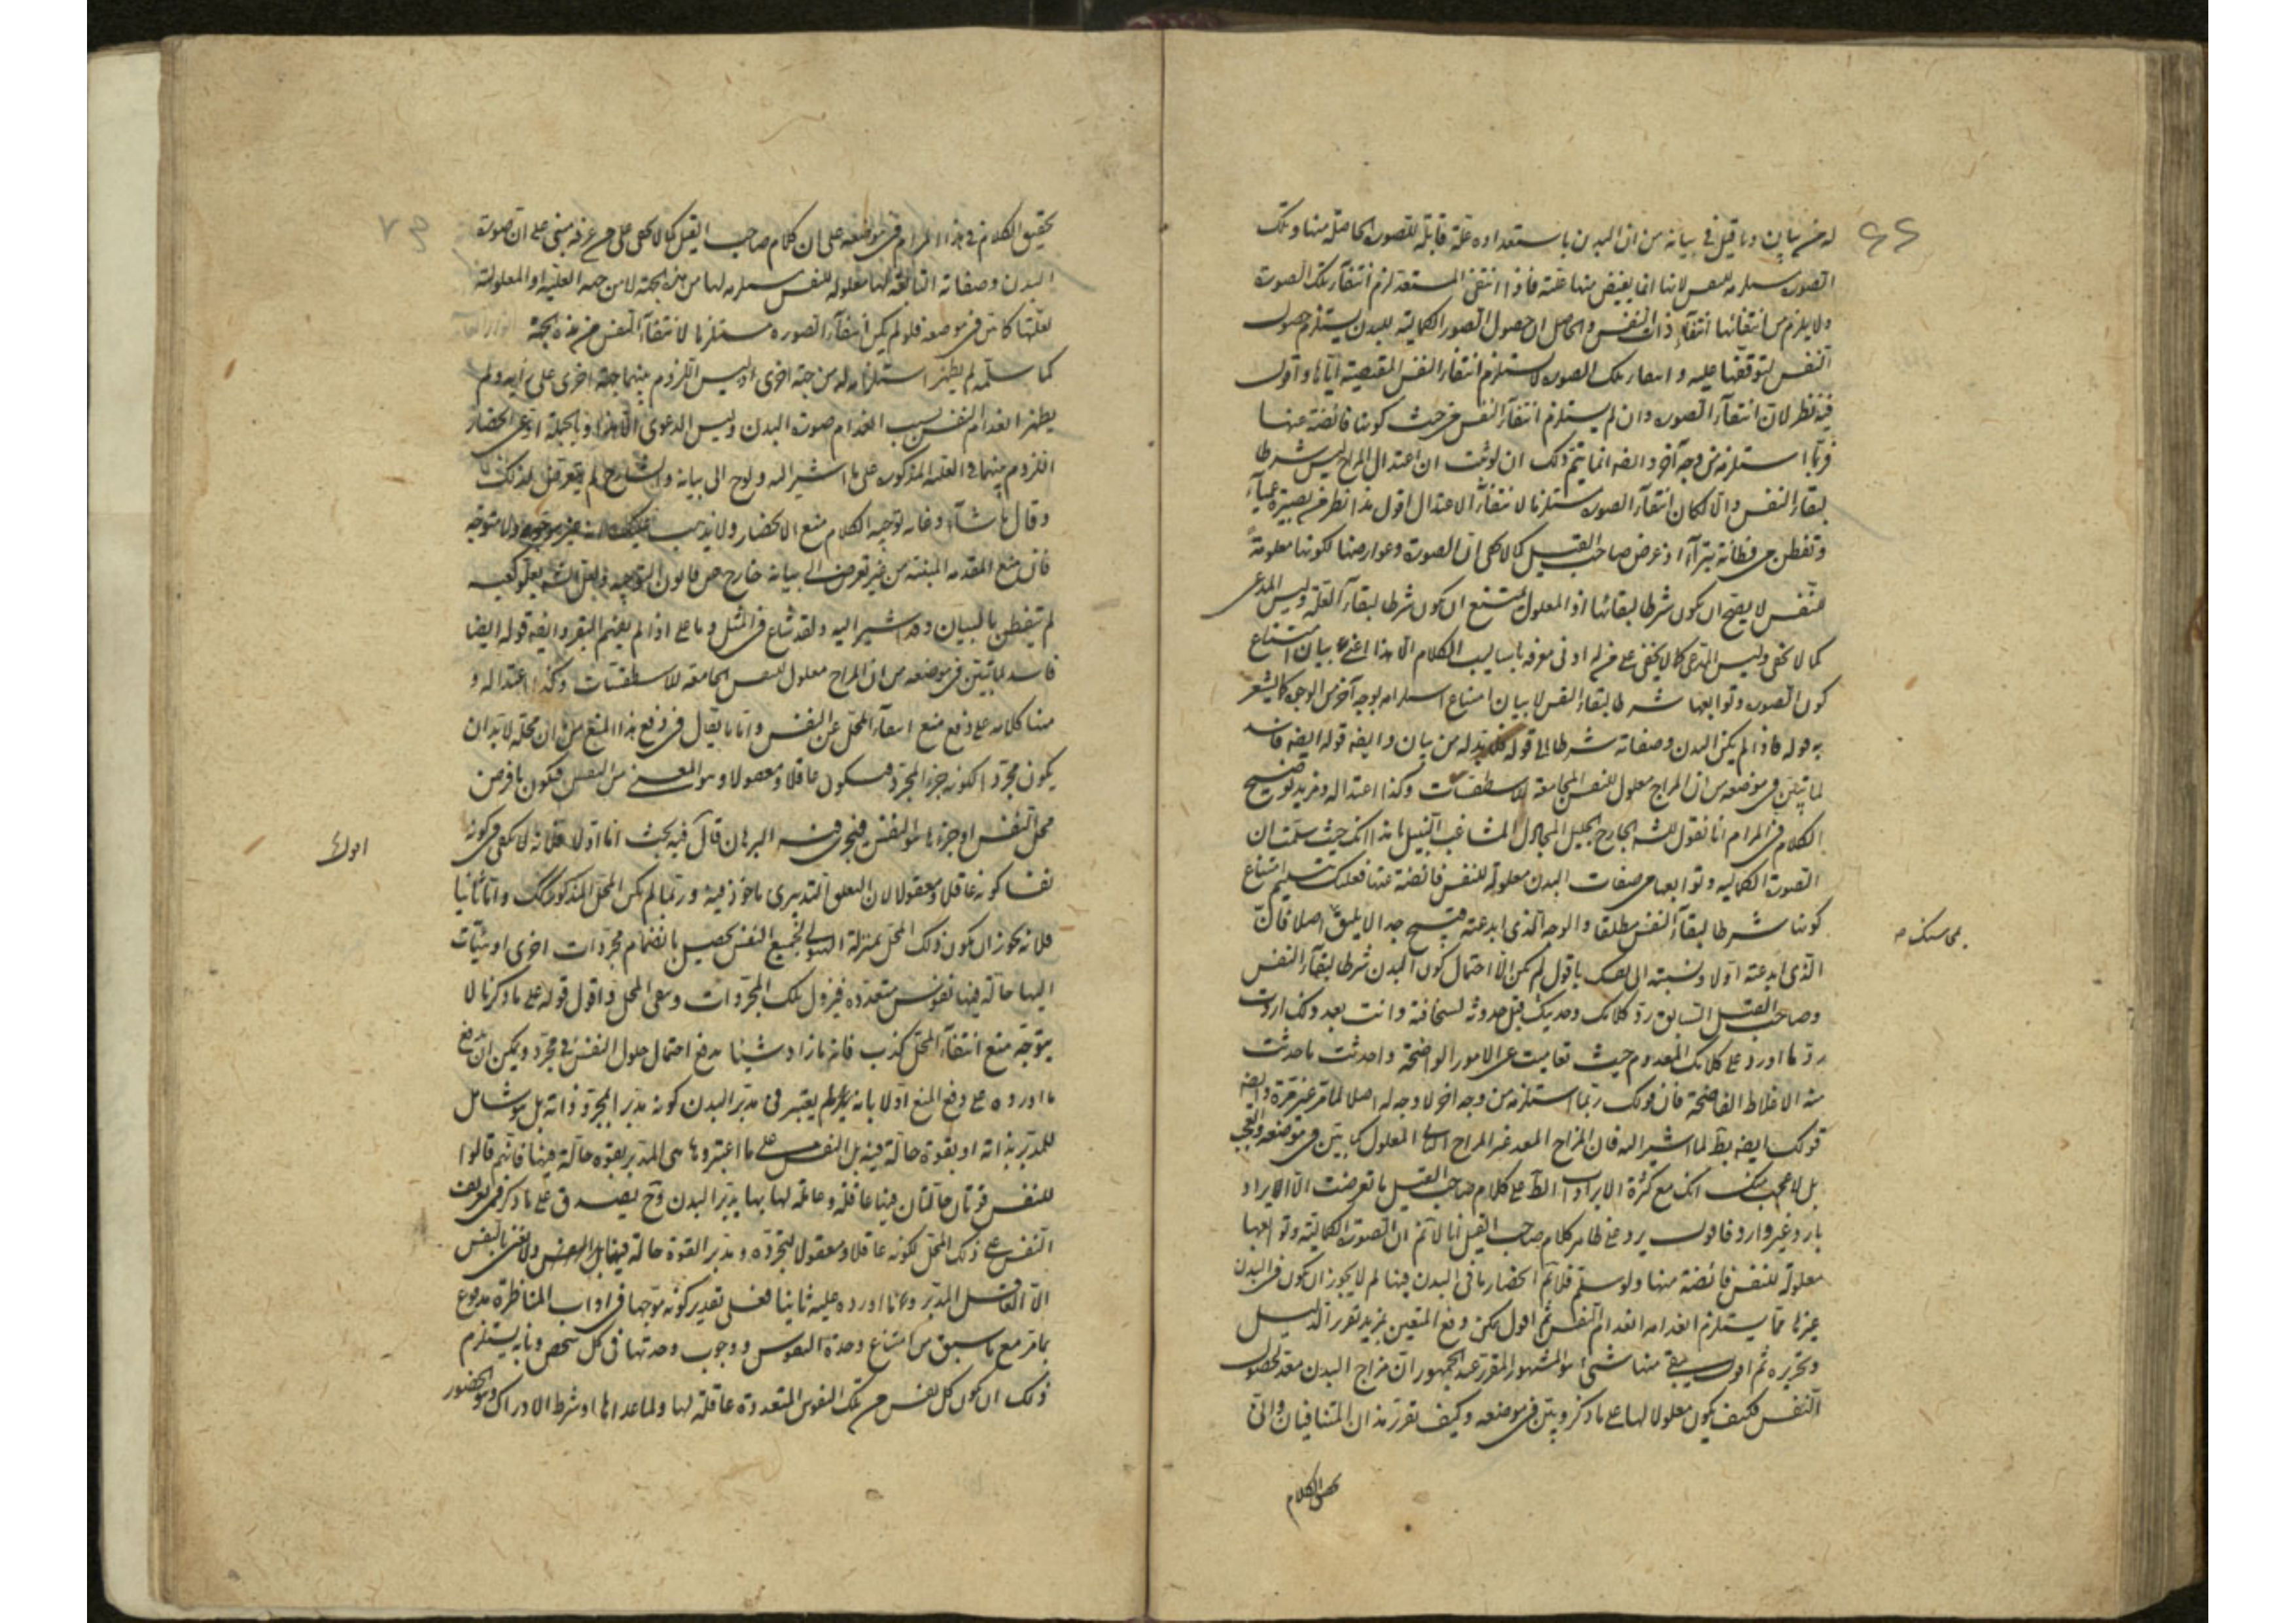 له من بيان وما قيل في بيانه من ان البدن باستعداده علة قابلة للصورة الحاصلة منها وتلك
الصورة مستلزمة للنفس لانها انما يفيض منها عنه فاذا انتفى المستعد لزم انتفاء تلك الصورة
ولا يلزم من انتفائها انتفاء ذات النفس والحاصل ان حصول الصور الكمالية للبدن يستلزم حصول
النفس لتوقفها عليه وانتفاء تلك الصورة لا يستلزم انتفاء النفس المقتضية اياها واقول
فيه نظر لان انتفاء الصورة وان لم يستلزم انتفاء النفس من حيث كونها فائضة عنها
فربما استلزمه من وجه آخر وايضه انما يتم ذلك ان لو ثبت ان اعتدال المزاج ليس شرطا
لبقاء النفس والا لكان انتفاء الصورة مستلزما لانتفاء الاعتدال اقول هذا نظر من بصيرة عمياء
وتفطن من فطانة بتراء اذ غرض صاحب القيل كما لا يخفى ان الصورة وعوارضها لكونها معلومة
للنفس لا يصح ان يكون شرطا لبقائها اذ المعلول يمتنع ان يكون شرطا لبقاء العلة وليس المدعى
كما لا يخفى وليس المدعى كما لا يخفى على من له ادنى معرفة باساليب الكلام الا هذا اعني بيان امتناع
كون الصورة وتوابعها شرطا لبقاء النفس لا بيان امتناع استلزامه بوجه آخر من الوجوه كما يشعر
به قوله فاذا لم يكن البدن وصفاته شرطا الى قوله فلا بد له من بيان وايضه قوله ايضه فاسد
لما تبين في موضعه من ان المزاج معلول للنفس الجامعة للاسطقسات وكذا اعتداله ومزيد توضيح
الكلام في المرام انا نقول للشه الجارح الجليل المجادل المشاغب النبيل ما هذا انك حيث سلمت ان
الصورة الكمالية وتوابعها من صفات البدن معلولة للنفس فائضة عنها فعليك تسليم امتناع
كونها شرطا لبقاء النفس مطلقا والوجه الذي ابدعته قبيح جدا لا يليق اصلا فان
الذي ابدعته اولا ونسبته الى نفسك باقول لم يكن الا احتمال كون البدن شرطا لبقاء النفس
وصاحب القيل السابق رد كلامك وحديثك قبل حدوثه لسخافته وانت بعد ذلك اردت
رد ما اورد على كلامك المعدوم حيث تعاميت عن الامور الواضحة واحدثت ما حدثت
منه الاغلاط الفاضحة فان قولك ربما استلزمه من وجه آخر لا وجه له اصلا لما مر غير مرة وايضه
قولك ايضه بط لما اشير اليه فان المزاج المعد غير المزاج المعلول كما بين في موضعه والعجب
بل لا عجب منك انك مع كثرة الايراد الط على كلام صاحب القيل ما تعرضت الا لايراد
بارد غير وارد فاقول يرد على ظاهر كلام صاحب القيل انا لا نم ان الصورة الكمالية وتوابعها
معلولة للنفس فائضة منها ولو سلم فلا نم انحصار ما في البدن فيها لم لا يجوز ان يكون في البدن
غيرها مما يستلزم انعدامه انعدام النفس ثم اقول يمكن دفع المنعين بمزيد تقرير الدليل
وتحريره ثم اقول بقي منها شئ هو المشهور المقرر عند الجمهور ان مزاج البدن معد لحصول
النفس فكيف يكون معلولا لها على ما ذكر وبين في موضعه وكيف تقرر هذان المتنافيان والحق
تحقيق الكلام
٦٦
تحقيق الكلام في هذا المرام في موضعه على ان كلام صاحب القيل كما لا يخفى على من عرفه مبني على ان صورة
البدن وصفاته التابعة لها معلولة للنفس مستلزمة لها من هذه الجهة لا من جهة العلية او المعلولية
لعلتها كما بين في موضعه فلو لم يكن انتفاء الصورة مستلزما لانتفاء النفس من هذه الجهة
كما سلمه لم يظهر استلزامه له من جهة اخرى اذ ليس اللزوم بينهما جهة اخرى على
يظهر انعدام النفس بسبب انعدام صورة البدن وليس الدعوى الا هذا وبالجملة ادعى انحصار
اللزوم بينهما في العلية المذكورة على ما اشير اليه ولوح الى بيانه والشارح لم يتعرض لذلك
وقال ما شاء وغاية توجيه الكلام منع الانحصار ولا يذهب عليك انه غير موجه ولا متوجه
فان منع المقدمة المبينة من غير تعرض الى بيانه خارج عن قانون التوجيه ولعل الشه لعلو كعبه
لم يتفطن بالبيان وقد اشير اليه ولقد شاع في المثل وما على اذا لم يفهم البقر وايضه قوله ايضا
فاسد لما تبين في موضعه من ان المزاج معلول للنفس الجامعة للاسطقسات وكذا اعتداله و
هنا كلامه على دفع منع انتفاء المحل عن النفس واما ما يقال في دفع هذا المنع من ان محله لا بد ان
يكون مجردا لكونه جزء المجرد فيكون عاقلا ومعقولا وهو المعني من النفس فيكون ما فرض
محل النفس او جزءها هو النفس فيجري فيه البرهان قال فيه بحث اما اولا فلانه لا يكفي في كونه
نفسا كونه عاقلا ومعقولا لان التعلق التدبيري ماخوذ فيه وربما لم يكن المحل المذكور كك واما ثانيا
فلانه يجوز ان يكون ذلك المحل بمنزلة الهيولى لجميع النفس يحصل بانضمام مجردات اخرى او هيئات
اليها حالة فيها نفوس متعددة فيزول تلك المجردات ويبقى المحل واقول قوله على ما ذكرنا لا
يتوجه منع انتفاء المحل كذب فانه ما زاد شيئا يدفع احتمال حلول النفس في مجرد ويمكن ان يدفع
ما اورده على دفع المنع اولا بانه لم يعتبر في مدبر البدن كونه مدبر المجرد ذاته بل هو شامل
للمدبر بذاته او بقوة حالة فيه بل النفس على ما اعتبروها هي المدبر بقوة حالة فيها فانهم قالوا
للنفس قوتان حالتان فيها عاقلة وعاملة لها بها يدبر البدن وح يصدق على ما ذكر في تعريف
النفس على ذلك المحل لكونه عاقلا ومعقولا لتجرده ومدبر القوة حالة فيها ولا نعني بالنفس
الا العاقل المدبر واما ما اورده عليه ثانيا فعلى تقدير كونه موجها في اداب المناظرة مدفوع
بما مر مع ما سبق من امتناع وحدة النفوس ووجوب وحدتها في كل شخص وبانه يستلزم
ذلك ان يكون كل نفس من تلك النفوس المتعددة عاقلة لها ولما عداها اذ شرط الادراك وهو الحضور
٦٧